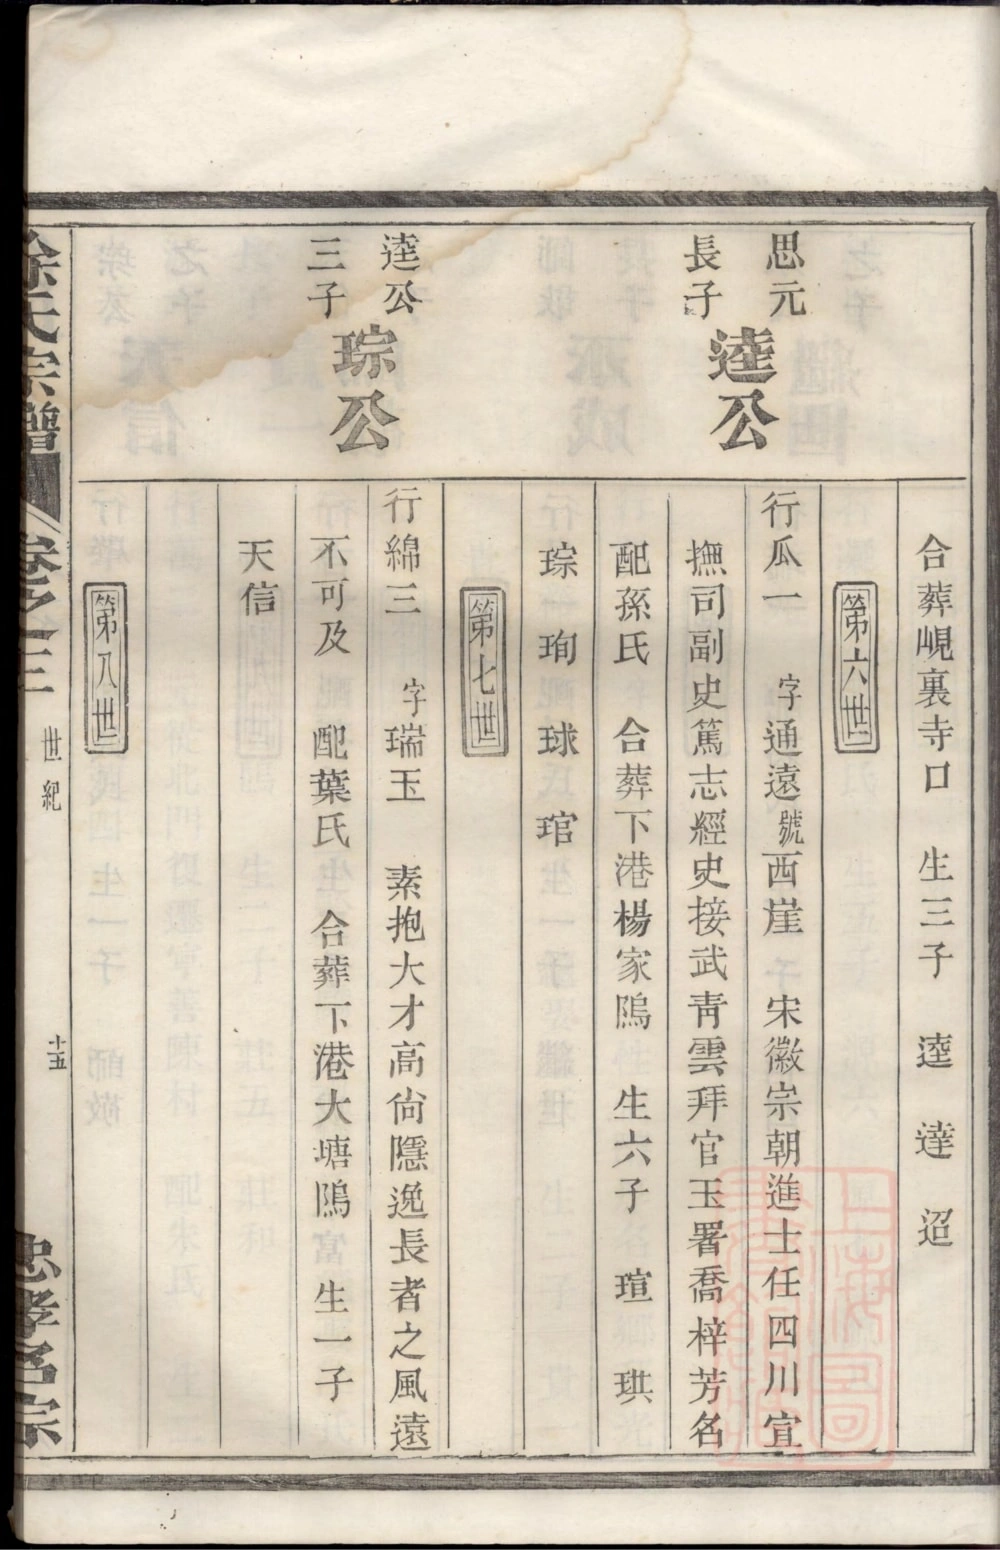 合葬峴裏寺口　生三子　逵　達　迢
第六世
思元
長子
逵公
行瓜一　字通遠號西崖　宋徽宗朝進士任四川宣
撫司副史篤志經史接武青雲拜官玉署喬梓芳名
配孫氏　合葬下港楊家隖　生六子　瑄　珙
琮　珣　球　琯
第七世
逵公
三子
琮公
行綿三　字瑞玉　素抱大才高尙隱逸長者之風遠
不可及　配葉氏　合葬下港大塘隖富　生一子
天信
第八世
徐氏宗譜
卷之三
世紀
十五
忠孝名宗